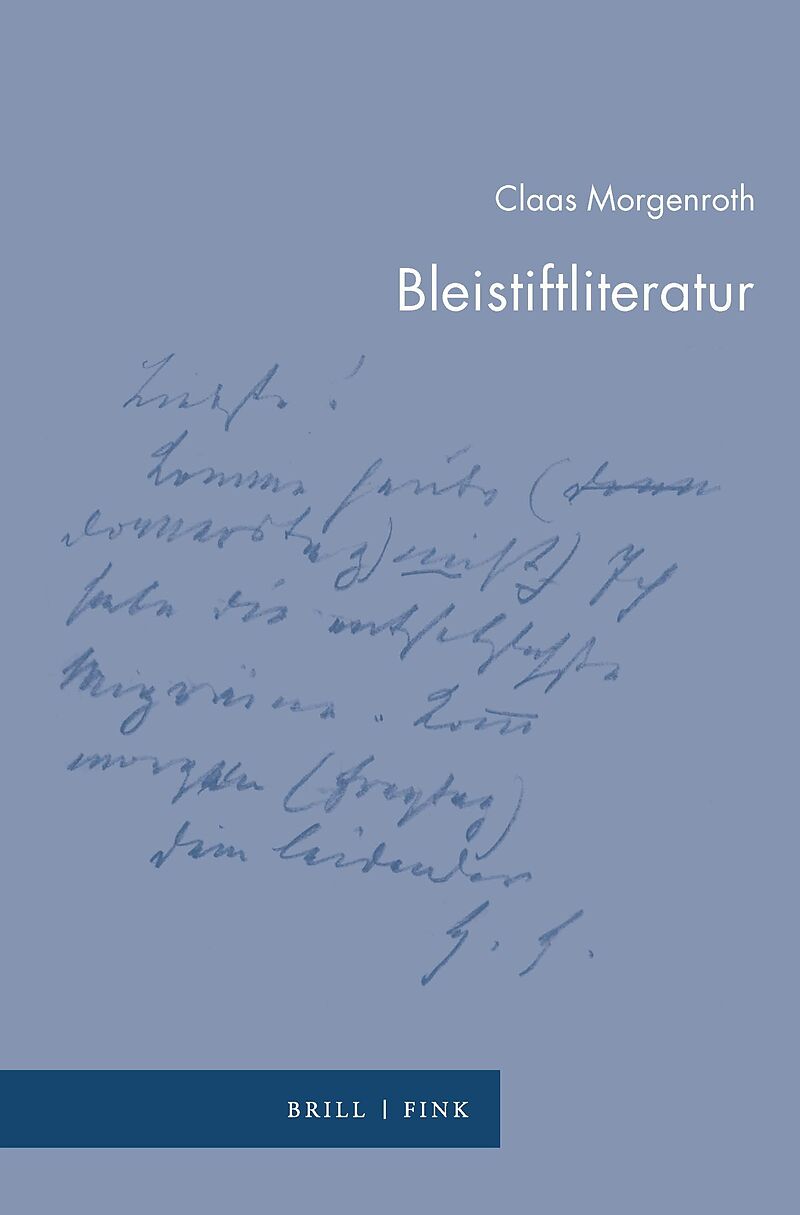 Claas Morgenroth
Bleistiftliteratur
Liebste !
Komme heute (donn
donnerstag) nicht! Ich
habe die entsetzlichste
Migräne. Komm
morgen (freytag)
Dein leidender
BRILL | FINK